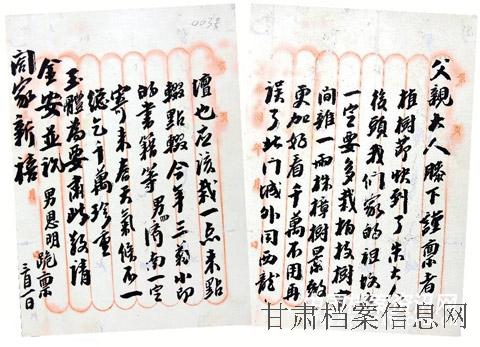 父親大人膝下謹稟者
植樹節快到了朱大人
後頭我們家的祖墳
一定要多栽柏枝樹
間雜一兩株樟樹景緻
更加好看千萬不用再
誤了北门城外同西龍
壇也应該栽一点来點
綴點綴今年三 小印
的書籍等男 南一定
寄来春天氣候不一
總乞千萬珍重
玉體為要肅此敬請
金安並祝 男恩明跪稟
闔家新禧 一日
甘肃档案信息网